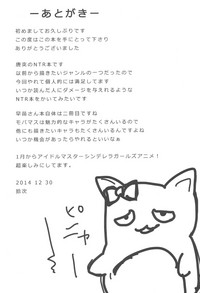 ーあとがきー
初めましてお久しぶりです
この度はこの本を手にとって下さり
ありがとうございました
唐突のNTR本です
以前から描きたいジャンルの一つだったので
今回やれて個人的には満足してます
いつか読んだ人にダメージを与えれるような
NTR本をかいてみたいです
早苗さん本自体は二冊目ですね
モバマスは魅力的なキャラがたくさんいるので
他にも描きたいキャラもたくさんいるんですよね
いつか機会があったらやれるといいなぁ
1月からアイドルマスターシンデレラガールズアニメ!
超楽しみにしてます。
2014 12 30
ピニャー